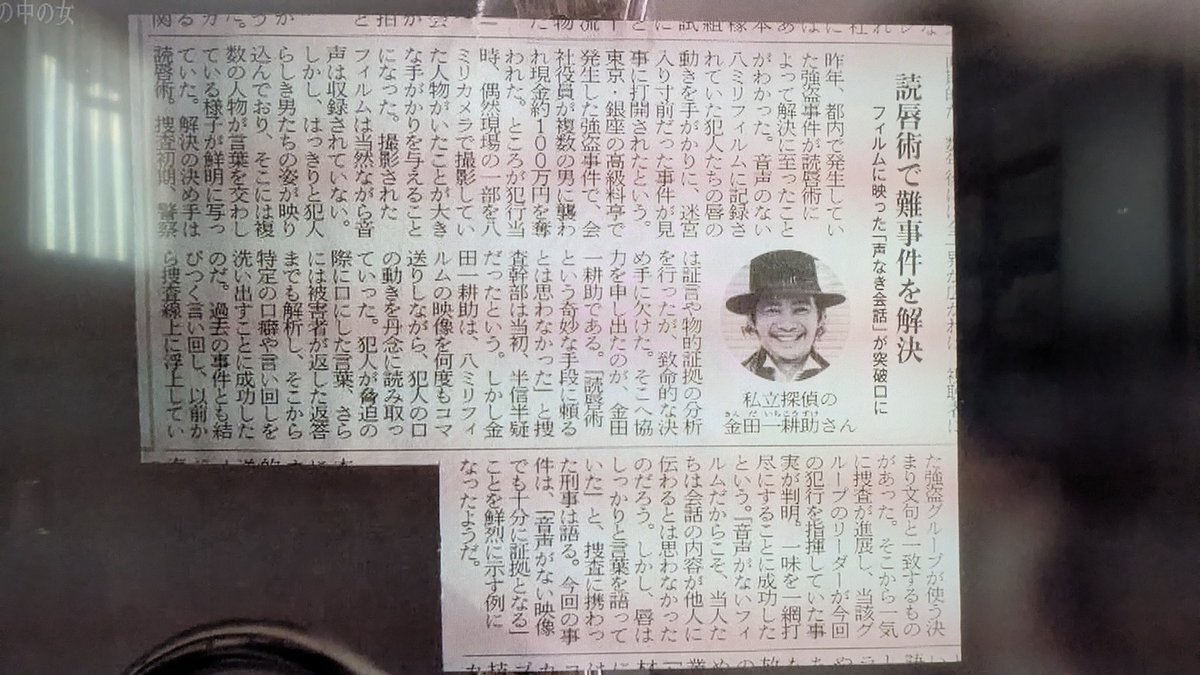 の中の女
読唇術で難事件を解決
フィルムに映った「声なき会話」が突破口に
昨年、都内で発生してい
た強盗事件が読唇術に
よって解決に至ったこと
がわかった。音声のない
八ミリフィルムに記録さ
れていた犯人たちの唇の
動きを手がかりに、迷宮
入り寸前だった事件が見
事に打開されたという。
東京・銀座の高級料亭で
発生した強盗事件で、会
社役員が複数の男に襲わ
れ現金約100万円を奪
われた。ところが犯行当
時、偶然現場の一部を八
ミリカメラで撮影してい
た人物がいたことが大き
な手がかりを与えること
になった。撮影された
フィルムは当然ながら音
声は収録されていない。
しかし、はっきりと犯人
らしき男たちの姿が映り
込んでおり、そこには複
数の人物が言葉を交わし
ている様子が鮮明に写っ
ていた。解決の決め手は
読唇術。捜査初期、警察
は証言や物的証拠の分析
を行ったが、致命的な決
め手に欠けた。そこへ協
力を申し出たのが、金田
一耕助である。「読唇術
という奇妙な手段に頼る
とは思わなかった」と捜
査幹部は当初、半信半疑
だったという。しかし金
田一耕助は、八ミリフィ
ルムの映像を何度もコマ
送りしながら、犯人の口
の動きを丹念に読み取っ
ていった。犯人が脅迫の
際に口にした言葉、さら
には被害者が返した返答
までも解析し、そこから
特定の口癖や言い回しを
洗い出すことに成功した
のだ。過去の事件とも結
びつく言い回し、以前か
ら捜査線上に浮上してい
私立探偵の
きんだいちこうすけ
金田一耕助さん
た強盗グループが使う決
まり文句と一致するもの
があった。そこから一気
に捜査が進展し、当該グ
ループのリーダーが今回
の犯行を指揮していた事
実が判明。一味を一網打
尽にすることに成功した
という。「音声がないフィ
ルムだからこそ、当人た
ちは会話の内容が他人に
伝わるとは思わなかった
のだろう。しかし、唇は
しっかりと言葉を語って
いた」と、捜査に携わっ
た刑事は語る。今回の事
件は、「音声がない映像
でも十分に証拠となる」
ことを鮮烈に示す例に
なったようだ。